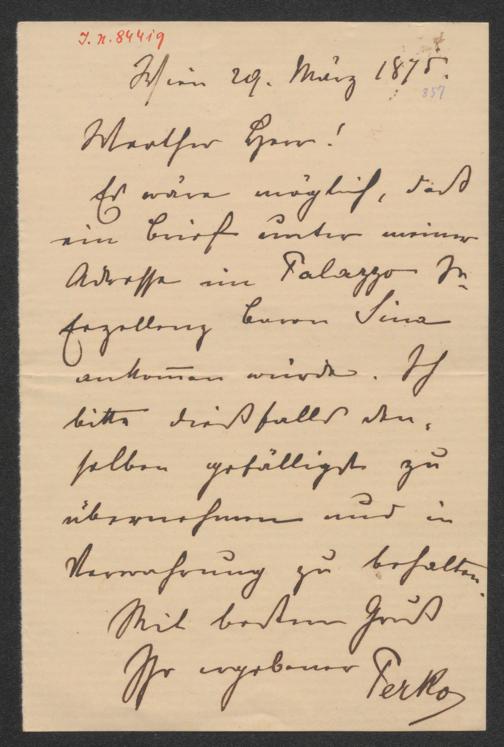 J. N. 84419
Wien 29. März 1875.
857
Werther Herr!
Es wäre möglich, daß
ein Brief unter meiner
Adresse im Palazzo Sr
Exzellenz Baron Sina
ankom̅en würde. Ich
bitte dießfalls den-
selben gefälligst zu
übernehmen und in
Verwahrung zu behalten.
Mit bestem Gruß
Ihr ergebener Ferko